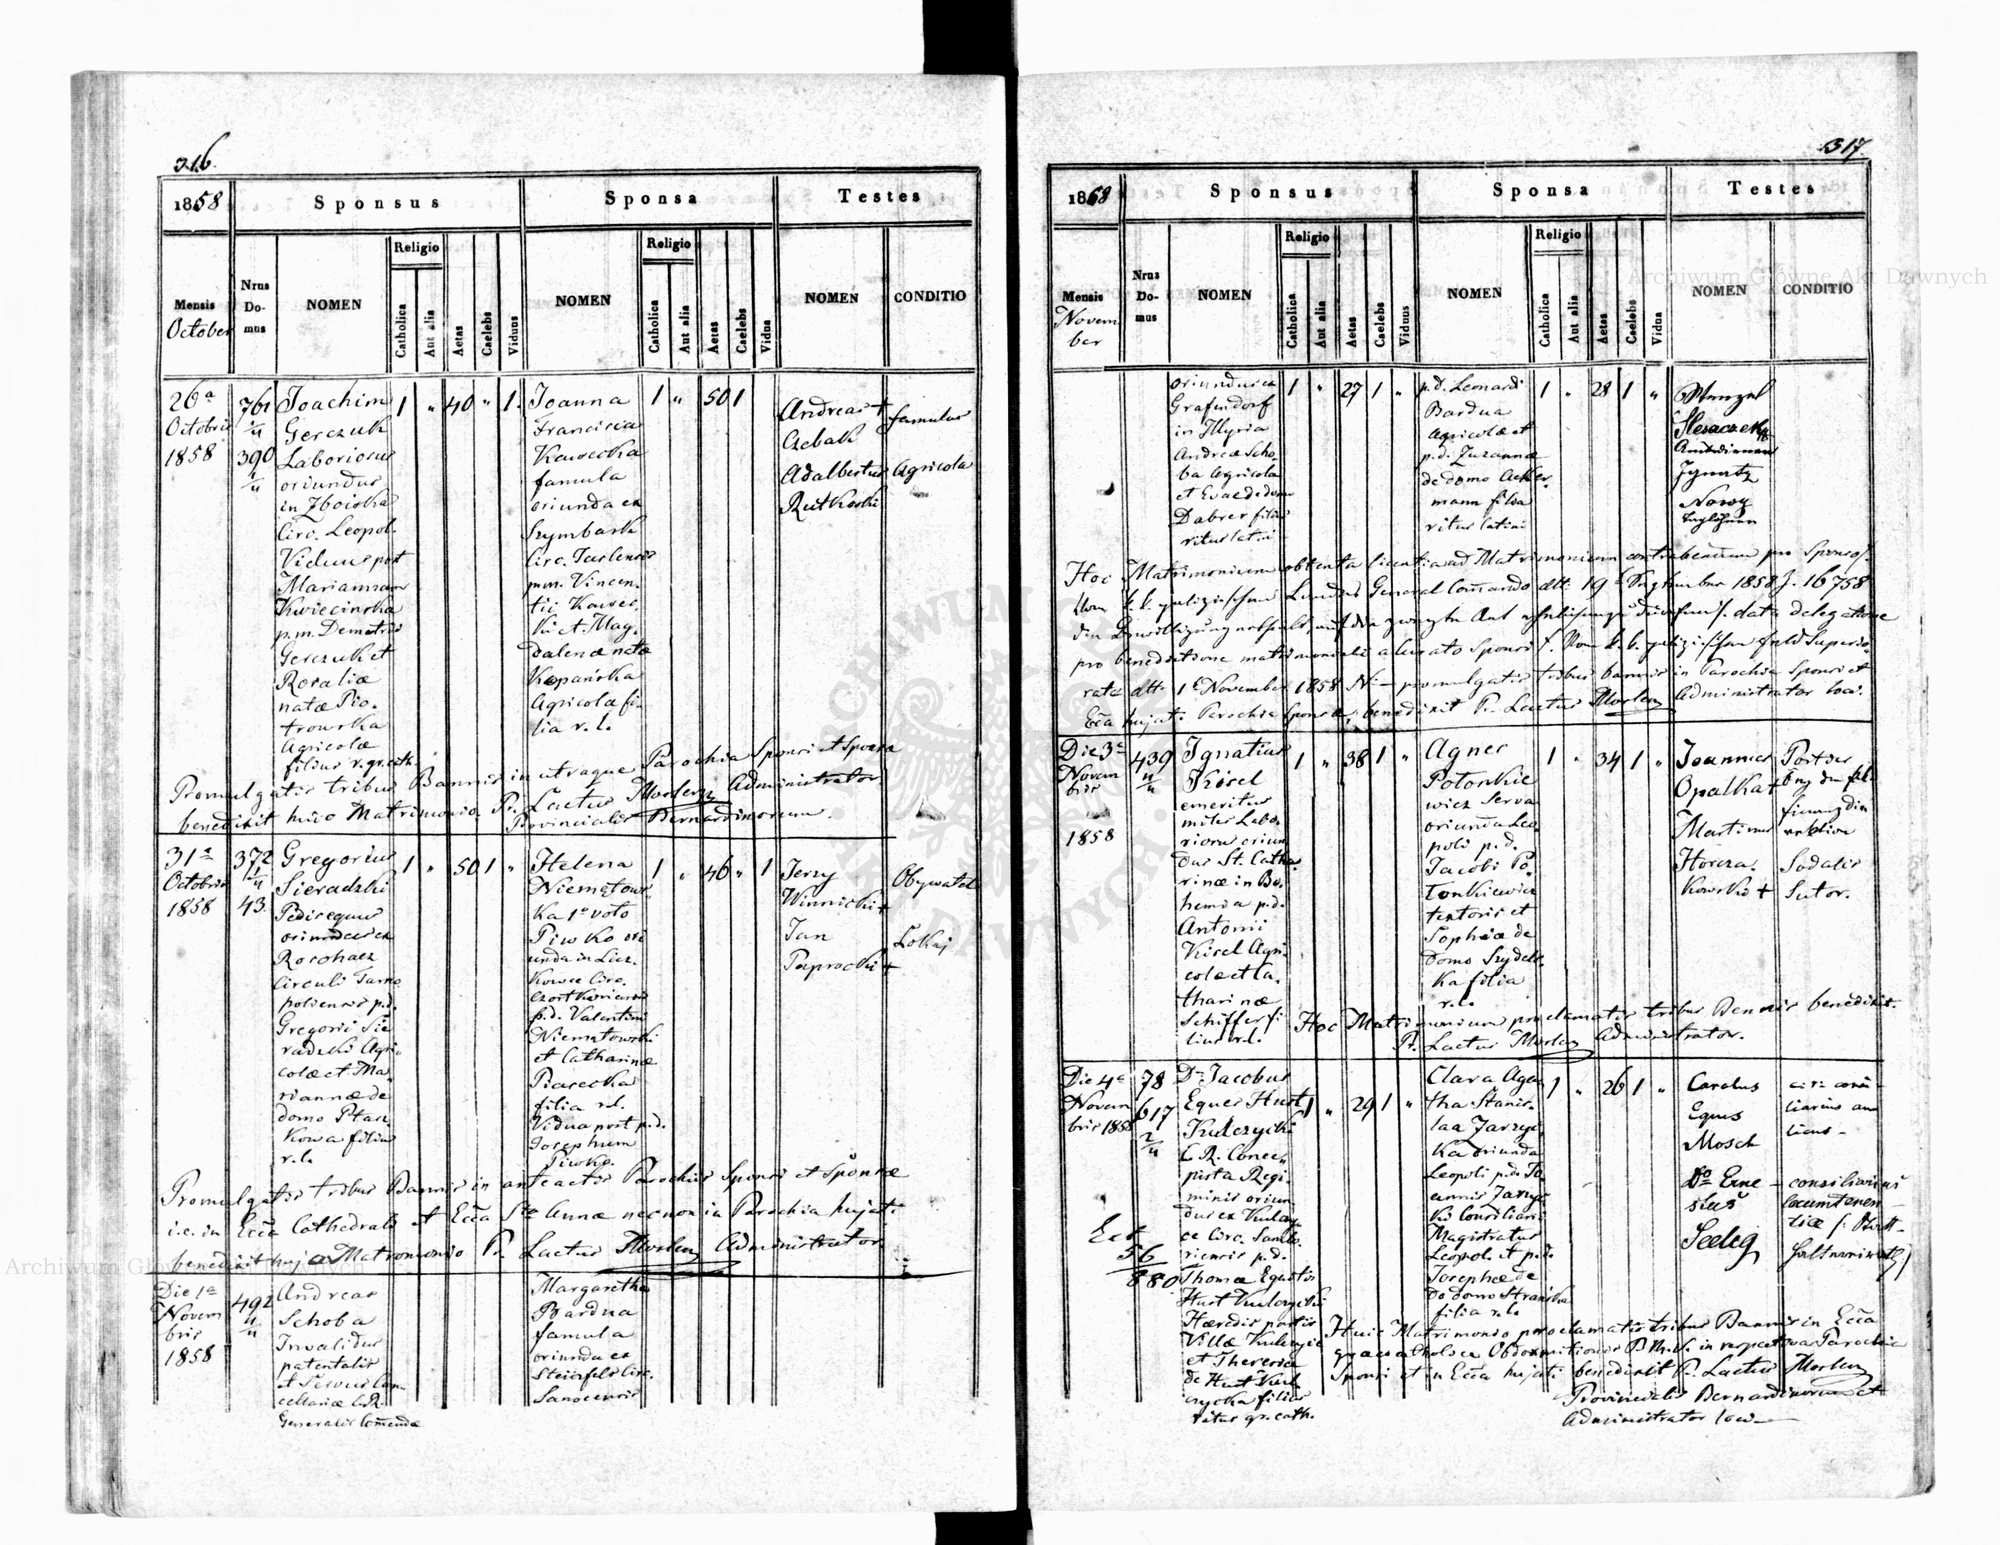 316.
1858
Sponsus
Sponsa
Testes
Mensis
October
Nrus
Do-
mus
NOMEN
Religio
Catholica
Aut alia
Aetas
Caelebs
Viduus
NOMEN
Religio
Catholica
Aut alia
Aetas
Caelebs
Vidua
NOMEN
CONDITIO
26a
Octobris
1858
761
390
Joachim
Gerczuk
Laboriosus
oriundus
in Zboiska
Circ. Leopol.
Viduus post
Mariannam
Kwiecinska
p.m. Demetrii
Gerczuk et
Rosaliæ
natæ Pio-
trowska
Agricolæ
filius r. gr. cath.
1 " 40 " 1.
Joanna
Francisca
Kawecka
famula
oriunda ex
Szymbark
Circ. Jaslensis
p.m. Vincen-
tii Kawec-
ki et Mag-
dalenæ natæ
Kopańska
Agricolæ fi-
lia r. l.
1 " 50 1
Andreas +
Aebak
Adalbertus
Rutkoski
famulus
Agricola
Promulgatis tribus Bannis in utraque Parochia Sponsi et Sponsæ
benedixit huic Matrimonio Pr. Laetus Morlery Administrator
Provincialis Bernardinorum.
31a
Octobris
1858
372
43.
Gregorius
Sieradzki
Pedisequus
oriundus ex
Rosohacz
Circuli Tarno-
poliensis p.d.
Gregorii Sie-
radzki Agri-
colæ et Ma-
riannæ de
domo Ptasz-
kowa filius
r. l.
1 " 50 1 "
Helena
Niemętow-
ka 1o voto
Piwko ori-
unda in Lisz-
kowce Circ.
Czortkoviensis
p.d. Valentini
Niemętowski
et Catharinæ
Piasecka
filia r. l.
Vidua post p.d.
Josephum
Piwko.
1 " 46 " 1
Jerzy
Winnicki +
Jan
Paprocki +
Obywatel
Lokaj
Promulgatis tribus Bannis in anteactis Parochiis Sponsi et Sponsæ
i.e. in Ecca Cathedrali et Ecca Stæ Annæ necnon in Parochia hujati
benedixit huic Matrimonio Pr. Laetus Morlery Administrator
Die 1a
Novem
bris
1858
492
Andreas
Schoba
Invalidus
patentalis
et Servus Can-
cellariæ C.R.
Generalis Comendæ
Margaretha
Bardua
famula
oriunda ex
Steinfels Circ.
Sanocensis
317.
1858
Sponsus
Sponsa
Testes
Mensis
Novem
ber
Nrus
Do-
mus
NOMEN
Religio
Catholica
Aut alia
Aetas
Caelebs
Viduus
NOMEN
Religio
Catholica
Aut alia
Aetas
Caelebs
Vidua
NOMEN
CONDITIO
oriundus ex
Grafendorf
in Illyria
Andreæ Scho-
ba Agricola
et Evæ de domo
Dabrer filius
ritus latini
1 " 27 1 "
p.d. Leonardi
Bardua
Agricolæ et
p.d. Zuzannæ
de domo Acker-
mann filia
ritus latini
1 " 28 1 "
Wenzel
Ignatz
Nowy
Taglöhner
Hoc Matrimonium obtenta licentia ad Matrimonium contrahendum pro Sponso
Vom k. k. galizischen Landes General Comando dtt. 19t September 1858 J. 16758
data delegatione
pro benedictione matrimoniali a Curato Sponsi /. Vom k. k. galizischen Feld Superio-
rate dtto 1t November 1858 N. — promulgatis tribus bannis in Parochia Sponsi et
Ecca hujati Parochia Sponsæ, benedixit Pr. Laetus Morlery Administrator loci.
Die 3a
Novem
bris
1858
439
Ignatius
Kisel
emeritus
miles Labo-
riosus oriun-
dus St. Catha-
rinæ in Bo-
hemia p.d.
Antonii
Kisel Agri-
colæ et Ca-
tharinæ
Schiffer fi-
lius r. l.
1 " 38 1 "
Agnes
Potonkie
wicz Serva
oriunda Leo-
poli p.d.
Jacobi Po-
tonkiewicz
textoris et
Sophiæ de
domo Szydels-
ka filia
r. l.
1 " 34 1 "
Joannes
Opalka +
Martinus
Horcza-
kowski +
Portier
Sodalis
Sutor.
Hoc Matrimonium proclamatis tribus Bannis benedixit.
Pr. Laetus Morlery Administrator.
Die 4a
Novem
bris 1858
78
617
Ect
56
880
Ds Jacobus
Eques Hust
Kulczycki
C. R. Conci-
pista Regi-
minis oriun-
dus ex Kulczy-
ce Circ. Samb-
riensis p.d.
Thomæ Equitis
Hust Kulczycki
Hæredis partis
Villæ Kulczyce
et Theresiæ
de Hust Kul-
czycka filius
ritus gr. cath.
1 " 29 1 "
Clara Aga-
tha Stanis-
laa Jarzyc-
ka oriunda
Leopoli p.d. Jo-
annis Jarzyc-
ki Consiliarii
Magistratus
Leopol. et p.d.
Josephæ de
domo Stranska
filia r. l.
1 " 26 1 "
Carolus
Eques
Mosch
Seelig
c. r. consi-
liarius au-
licus -
- consiliarius
locumtenen-
tiæ
Huic Matrimonio proclamatis tribus Bannis in Ecca
græco catholica Obdormitionis B.M.V. in respectiva Parochia
Sponsi et in Ecca hujati benedixit Pr. Laetus Morlery
Provincialis Bernardinorum et
Administrator loci
Archiwum Główne Akt Dawnych
Archiwum Główne Akt Dawnych
ARCHIWUM GŁÓWNE AKT DAWNYCH